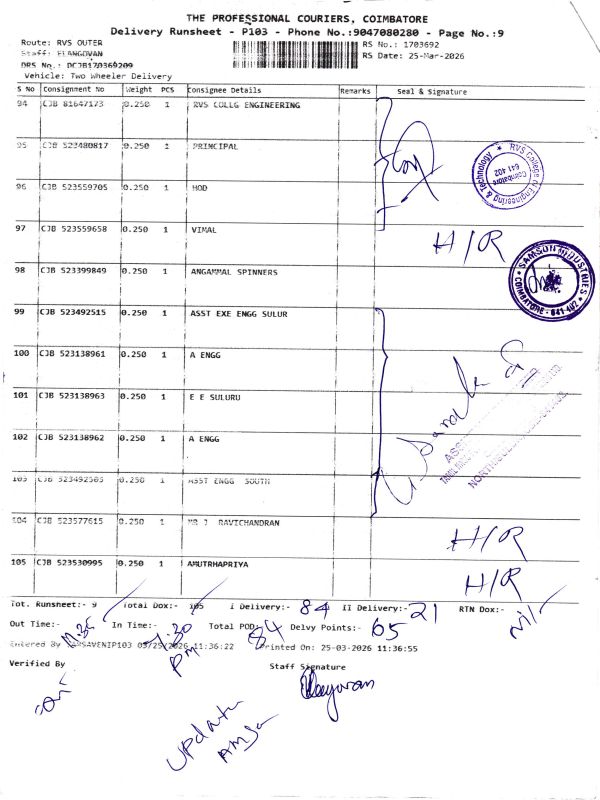 THE PROFESSIONAL COURIERS, COIMBATORE
Delivery Runsheet - P103 - Phone No.:9047080280 - Page No.:9
Route: RVS OUTER
RS No.: 1703692
Staff: ELANGOVAN
RS Date: 25-Mar-2026
DRS No.: DCJB170369209
Vehicle: Two Wheeler Delivery
S No Consignment No Weight PCS Consignee Details Remarks Seal & Signature
94 CJB 81647173 0.250 1 RVS COLLG ENGINEERING
95 CJB 523480817 0.250 1 PRINCIPAL
RVS College of Engineering & Technology
Coimbatore
641 402
96 CJB 523559705 0.250 1 HOD
97 CJB 523559658 0.250 1 VIMAL H/R
98 CJB 523399849 0.250 1 ANGAMMAL SPINNERS
SAMSON INDUSTRIES
COIMBATORE - 641 402
99 CJB 523492515 0.250 1 ASST EXE ENGG SULUR
100 CJB 523138961 0.250 1 A ENGG
101 CJB 523138963 0.250 1 E E SULURU
102 CJB 523138962 0.250 1 A ENGG
103 CJB 523492505 0.250 1 ASST ENGG SOUTH
104 CJB 523577615 0.250 1 MR J RAVICHANDRAN H/R
105 CJB 523530995 0.250 1 AMUTRHAPRIYA H/R
Tot. Runsheet:- 9 Total Dox:- 105 I Delivery:- 84 II Delivery:- 21 RTN Dox:- Nil
Out Time:- 11.35 In Time:- 7.30 pm Total POD:- 84 Delvy Points:- 65
Entered By 03/25/2026 11:36:22 Printed On: 25-03-2026 11:36:55
Verified By Staff Signature
Update